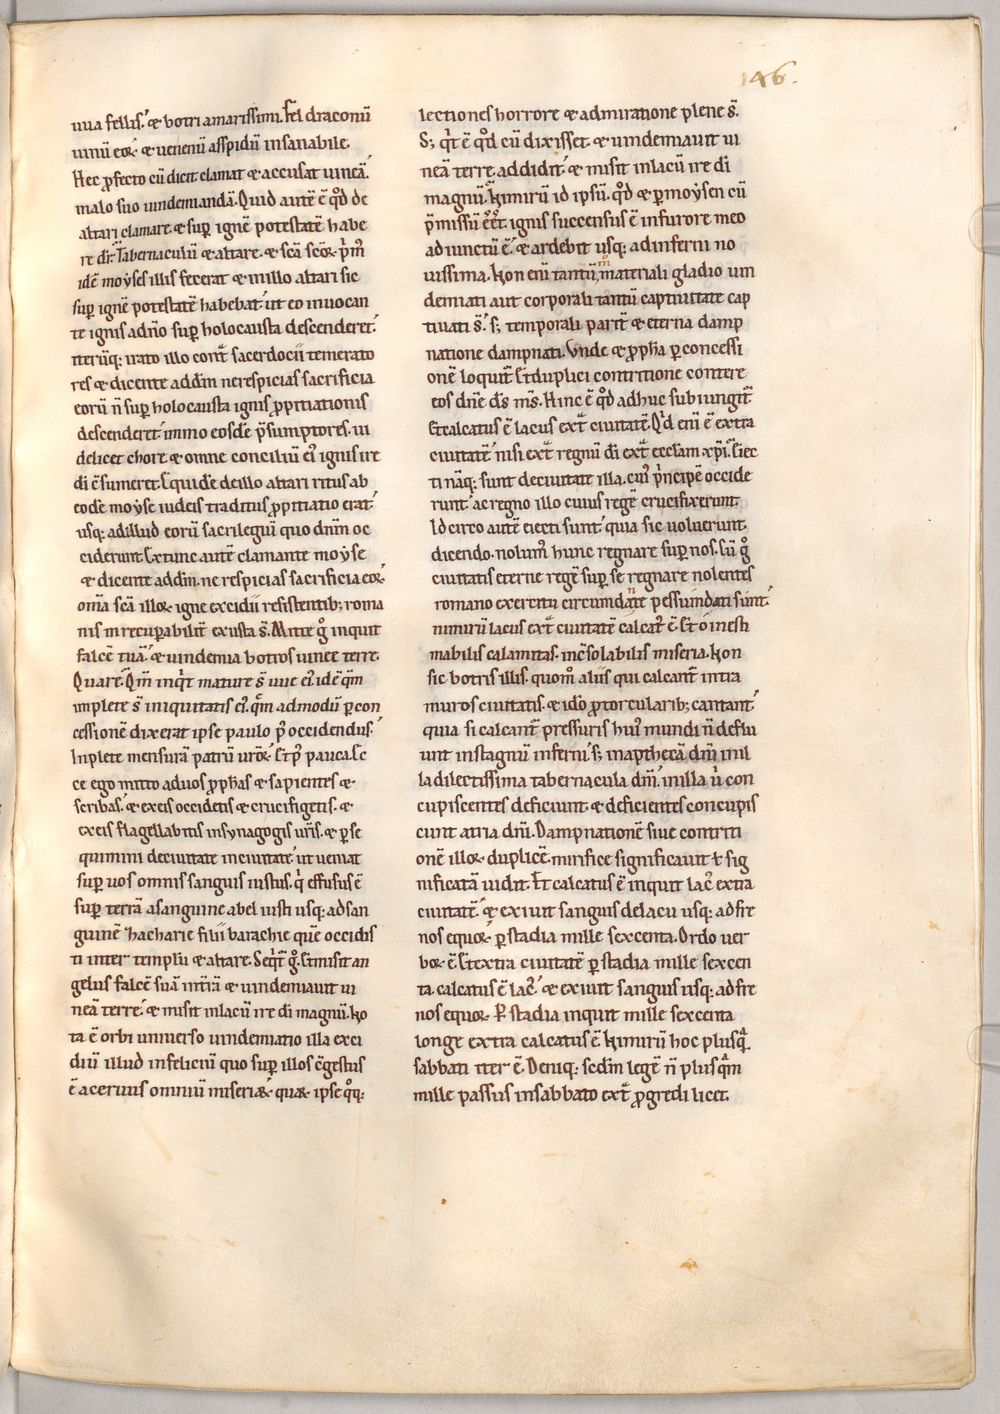 146.
uua fellis. & botri amarissimi. Fel draconũ
uinũ eoꝝ. & uenenũ asspidũ insanabile.
Hec ꝓfecto cũ dicit clamat & accusat uineã.
malo suo uindemiandã. Quid autẽ ẽ qͦd de
altari clamare & suꝑ ignẽ potestatẽ habe
re dr̃. Tabernaculũ & altare & scã scoꝝ pͥmũ
idẽ moyses illis fecerat & in illo altari sic
suꝑ ignẽ potestatẽ habebat. ut eo inuocan
te ignis a dño suꝑ holocausta descenderet.
iterũq; irato illo cont̃ sacerdocii temerato
res & dicente ad dñm ne respicias sacrificia
eorũ ñ suꝑ holocausta ignis ꝓpitiationis
descenderet. immo eosdẽ p̃sumptores. ui
delicet chore & omne conciliũ ei᷒ ignis ire
di c̃sumeret. Equidẽ de illo altari ritus ab
eodẽ moyse iudeis traditus ꝓpitiatio erat.
usq; ad illud eorũ sacrilegiũ quo dñm oc
ciderunt. Ex tunc autẽ clamante moyse
& dicente ad dñm. ne respicias sacrificia eoꝝ
om̃ia scã illoꝝ igne excidii resistentib; roma
nis inrecuꝑabilit̃ exusta s̃. Mitte gͦ inquit
falcẽ tuã. & uindemia botros uinee terre.
Quare. Qm̃ inqͥt mature s̃ uue ei᷒ idẽ qm̃
implete s̃ iniquitatis ei᷒. quẽ admodũ ꝑ con
cessionẽ dixerat ipse paulo p᷒ occidendus.
Inplete mensurã patrũ uroꝝ. Et p᷒ pauca. Ec
ce ego mitto ad uos ꝓphas & sapientes &
scribas. & ex eis occidetis & crucifigetis. &
ex eis flagellabitis in synagogis ur̃is. & ꝑse
quimini de ciuitate in ciuitatẽ. ut ueniat
suꝑ uos omnis sanguis iustus. qͥ effusus ẽ
suꝑ terrã a sanguine abel iusti usq; ad san
guinẽ hacharie filii barachie quẽ occidis
ti inter templũ & altare. Seqͥt̃ gͦ. Et misit an
gelus falcẽ suã in t̃rã & uindemiauit ui
neã terre. & misit in lacũ ire di magnũ. No
ta ẽ orbi uniuerso uindemiatio illa exci
diũ illud infeliciũ quo suꝑ illos c̃gestus
ẽ aceruus omniũ miseriaꝝ. quaꝝ ipse qͦq;
lectiones horrore & admiratione plene s̃.
S; qͥd ẽ qͦd cũ dixisset. & uindemiauit ui
neã terre. addidit. & misit in lacũ ire di
magnũ. Nimirũ id ipsũ. qͦd & ꝑ moysen cũ
p̃missũ eẽt. ignis succensus ẽ in furore meo
adiunctũ ẽ. & ardebit usq; ad inferni no
uissima. Non enĩ tantũ materiali gladio uin
demiati aut corporali tantũ captiuitate cap
tiuati s̃. s; temporali parit̃ & eterna damp
natione dampnati. Vnde & ꝓpha ꝑ concessi
onẽ loquit̃. Et duplici contritione contere
eos dñe ds̃ ms̃. Hinc ẽ qͦd adhuc subiungit̃
Et calcatus ẽ lacus ext̃ ciuitatẽ. Qͥd enĩ ẽ extra
ciuitatẽ. nisi ext̃ regnũ di ext̃ eccl̃am xp̃i. Eiec
ti nãq; sunt de ciuitate illa. cui᷒ pͥncipẽ occide
runt. ac regno illo cuius regẽ crucifixerunt.
Idcirco autẽ eiecti sunt. quia sic uoluerunt.
dicendo. nolum᷒ hunc regnare suꝑ nos. Cũ gͦ
ciuitatis eterne regẽ suꝑ se regnare nolentes
romano exercitu circumdante pessundati sunt.
nimirũ lacus ext̃ ciuitatẽ calcat᷒ ẽ. Et o inesti
mabilis calamitas. inc̃solabilis miseria. Non
sic botris illis. quom᷒ aliis qui calcant̃ intra
muros ciuitatis. & ido ꝓ torcularib; cantant̃.
quia si calcant̃ pressuris hui᷒ mundi ñ deflu
unt in stagnũ inferni. s; in apthecã dñi in il
la dilectissima tabernacula dñi. in illa ũ con
cupiscentes deficiunt. & deficientes concupis
cunt atria dñi. Dampnationẽ siue contriti
onẽ illoꝝ duplicẽ mirifice significauit ł sig
nificatã uidit. Et calcatus ẽ inquit lac᷒ extra
ciuitatẽ. & exiuit sanguis de lacu usq; ad fre
nos equoꝝ ꝑ stadia mille sexcenta. Ordo uer
boꝝ ẽ. Et extra ciuitatẽ ꝑ stadia mille sexcen
ta calcatus ẽ lac᷒. & exiuit sanguis usq; ad fre
nos equoꝝ. Ꝑ stadia inquit mille sexcenta
longe extra calcatus ẽ. Nimirũ hoc plusquã
sabbati iter ẽ. Deniq; scdm legẽ ñ plus quã
mille passus in sabbato ext̃ ꝓgredi licet.